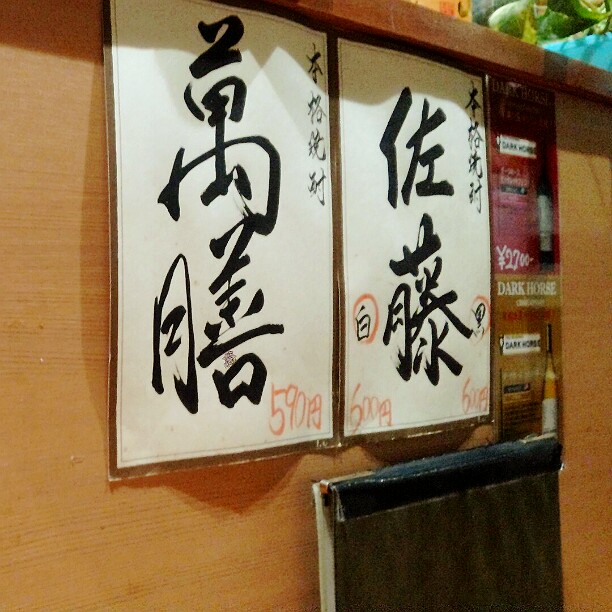 本格焼酎
萬膳
590円
本格焼酎
佐藤
白
黒
600円
600円
DARK HORSE
DARK HORSE
¥2700-
DARK HORSE
DARK HORSE